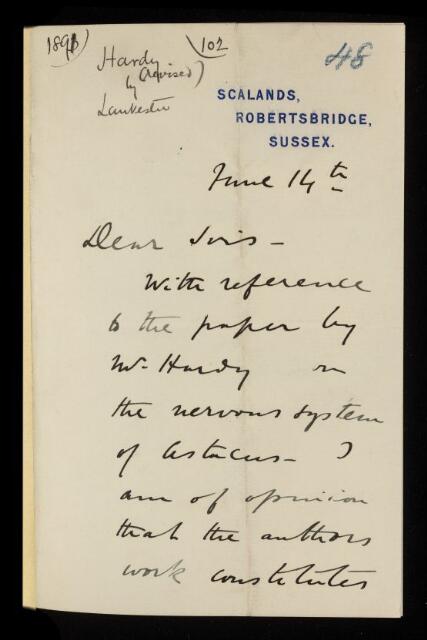 189
102
48
Hardy
(revised)
by
Lankester
SCALANDS,
ROBERTSBRIDGE,
SUSSEX.
June 14th
Dear Sirs -
With reference
to the paper by
Mr. Hardy on
the nervous system
of Astacus - I
am of opinion
that the authors
work constitutes